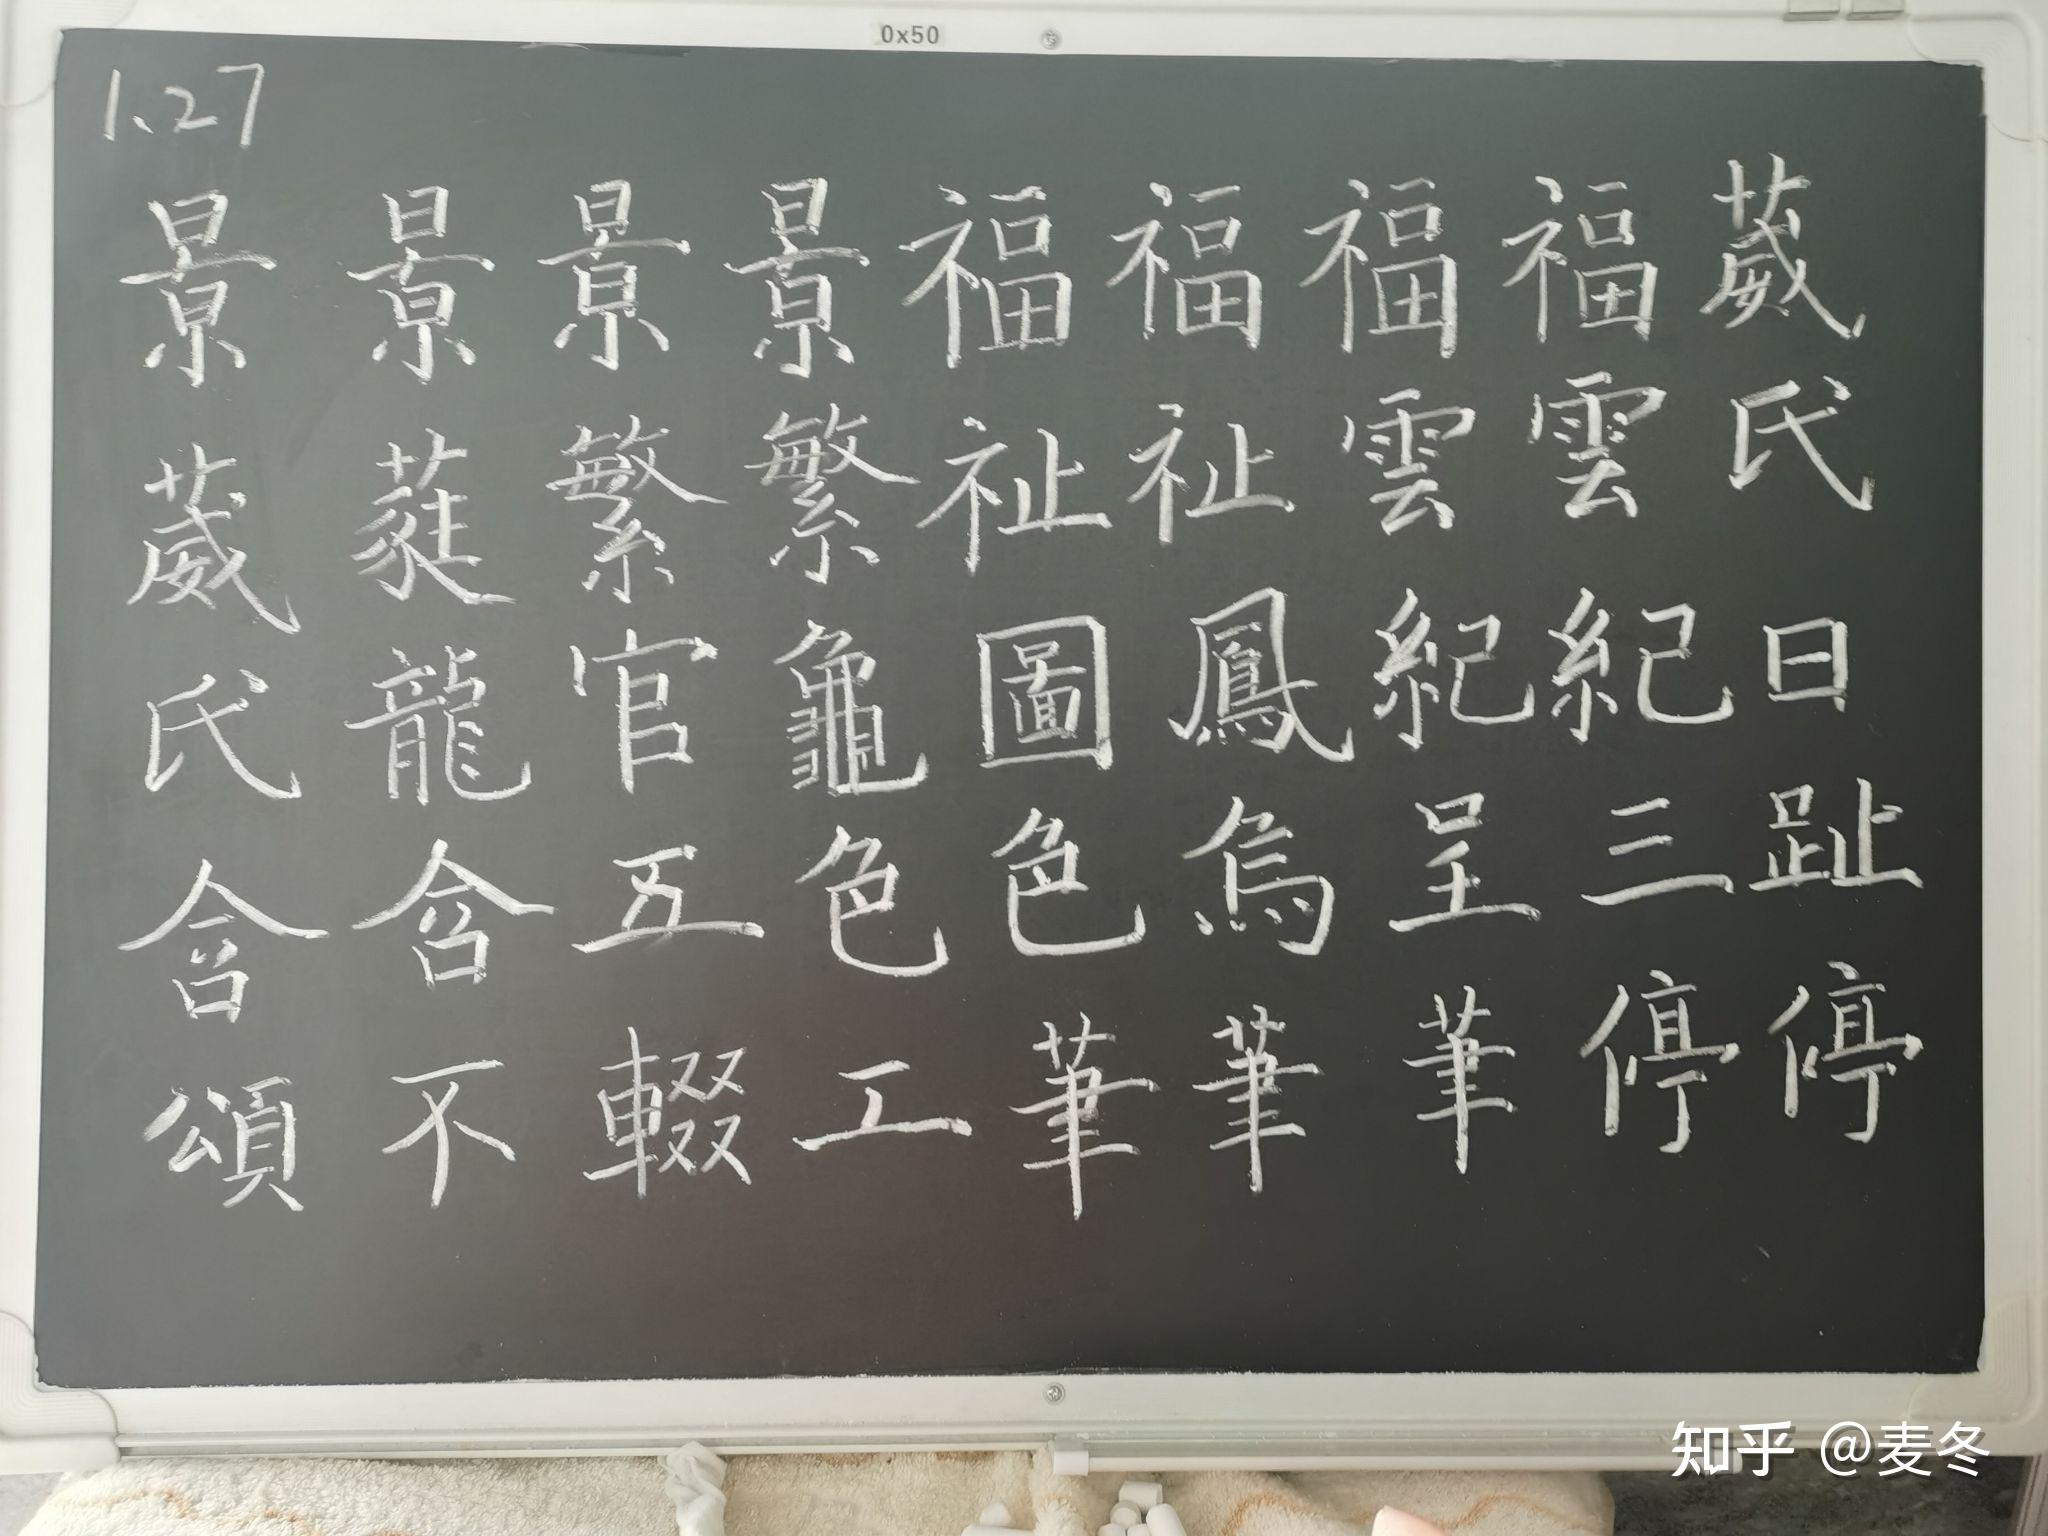 1.27
景景景景福福福福葳
葳蕤繁繁祉祉雲雲氏
氏龍官龜圖鳳紀紀日
含含五色色烏呈三趾
頌不輟工筆筆筆停停
0x50
知乎 @麦冬